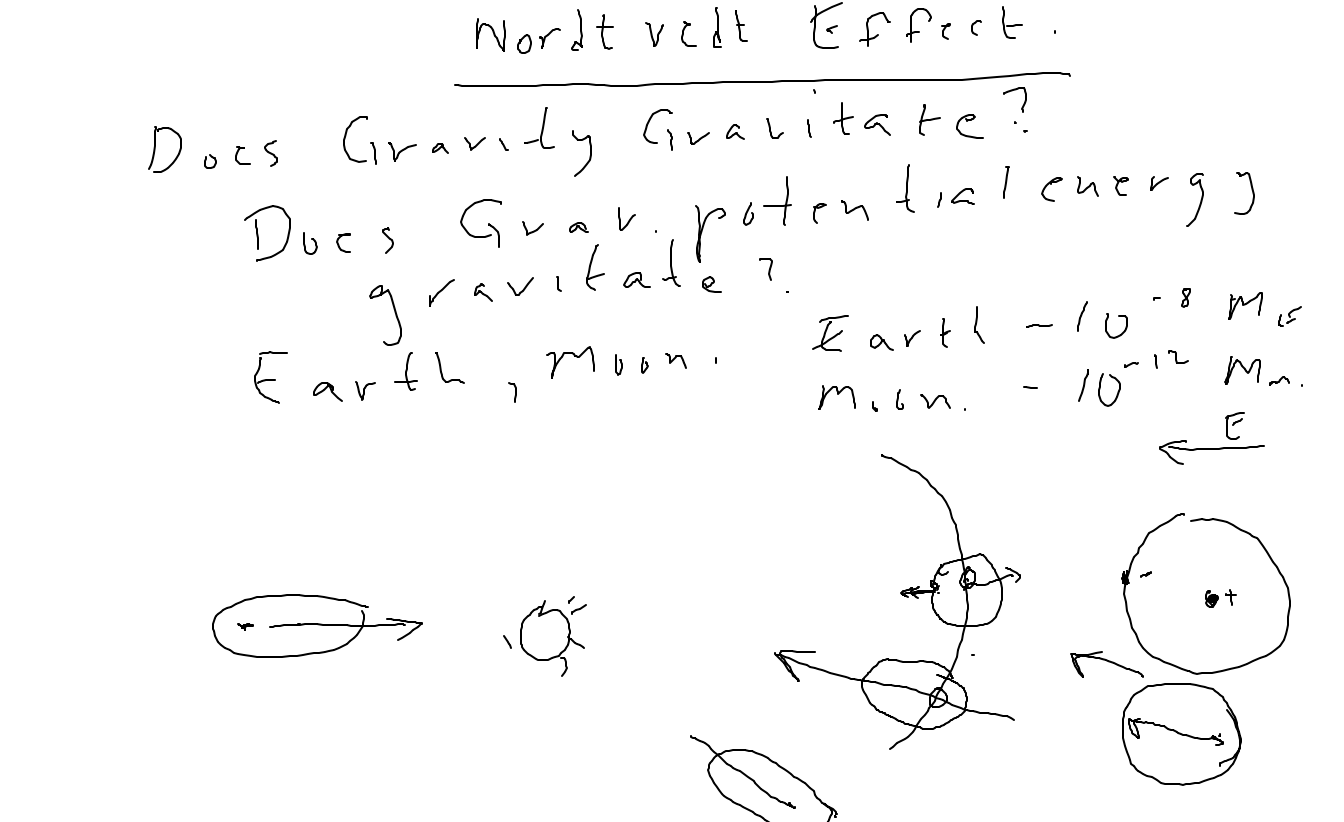 Nordtvedt Effect.
Does Gravity Gravitate?
Does Grav. potential energy
gravitate?
Earth, Moon.
Earth ~ 10^-8 M
Moon. - 10^-12 Mm.
E
-
+